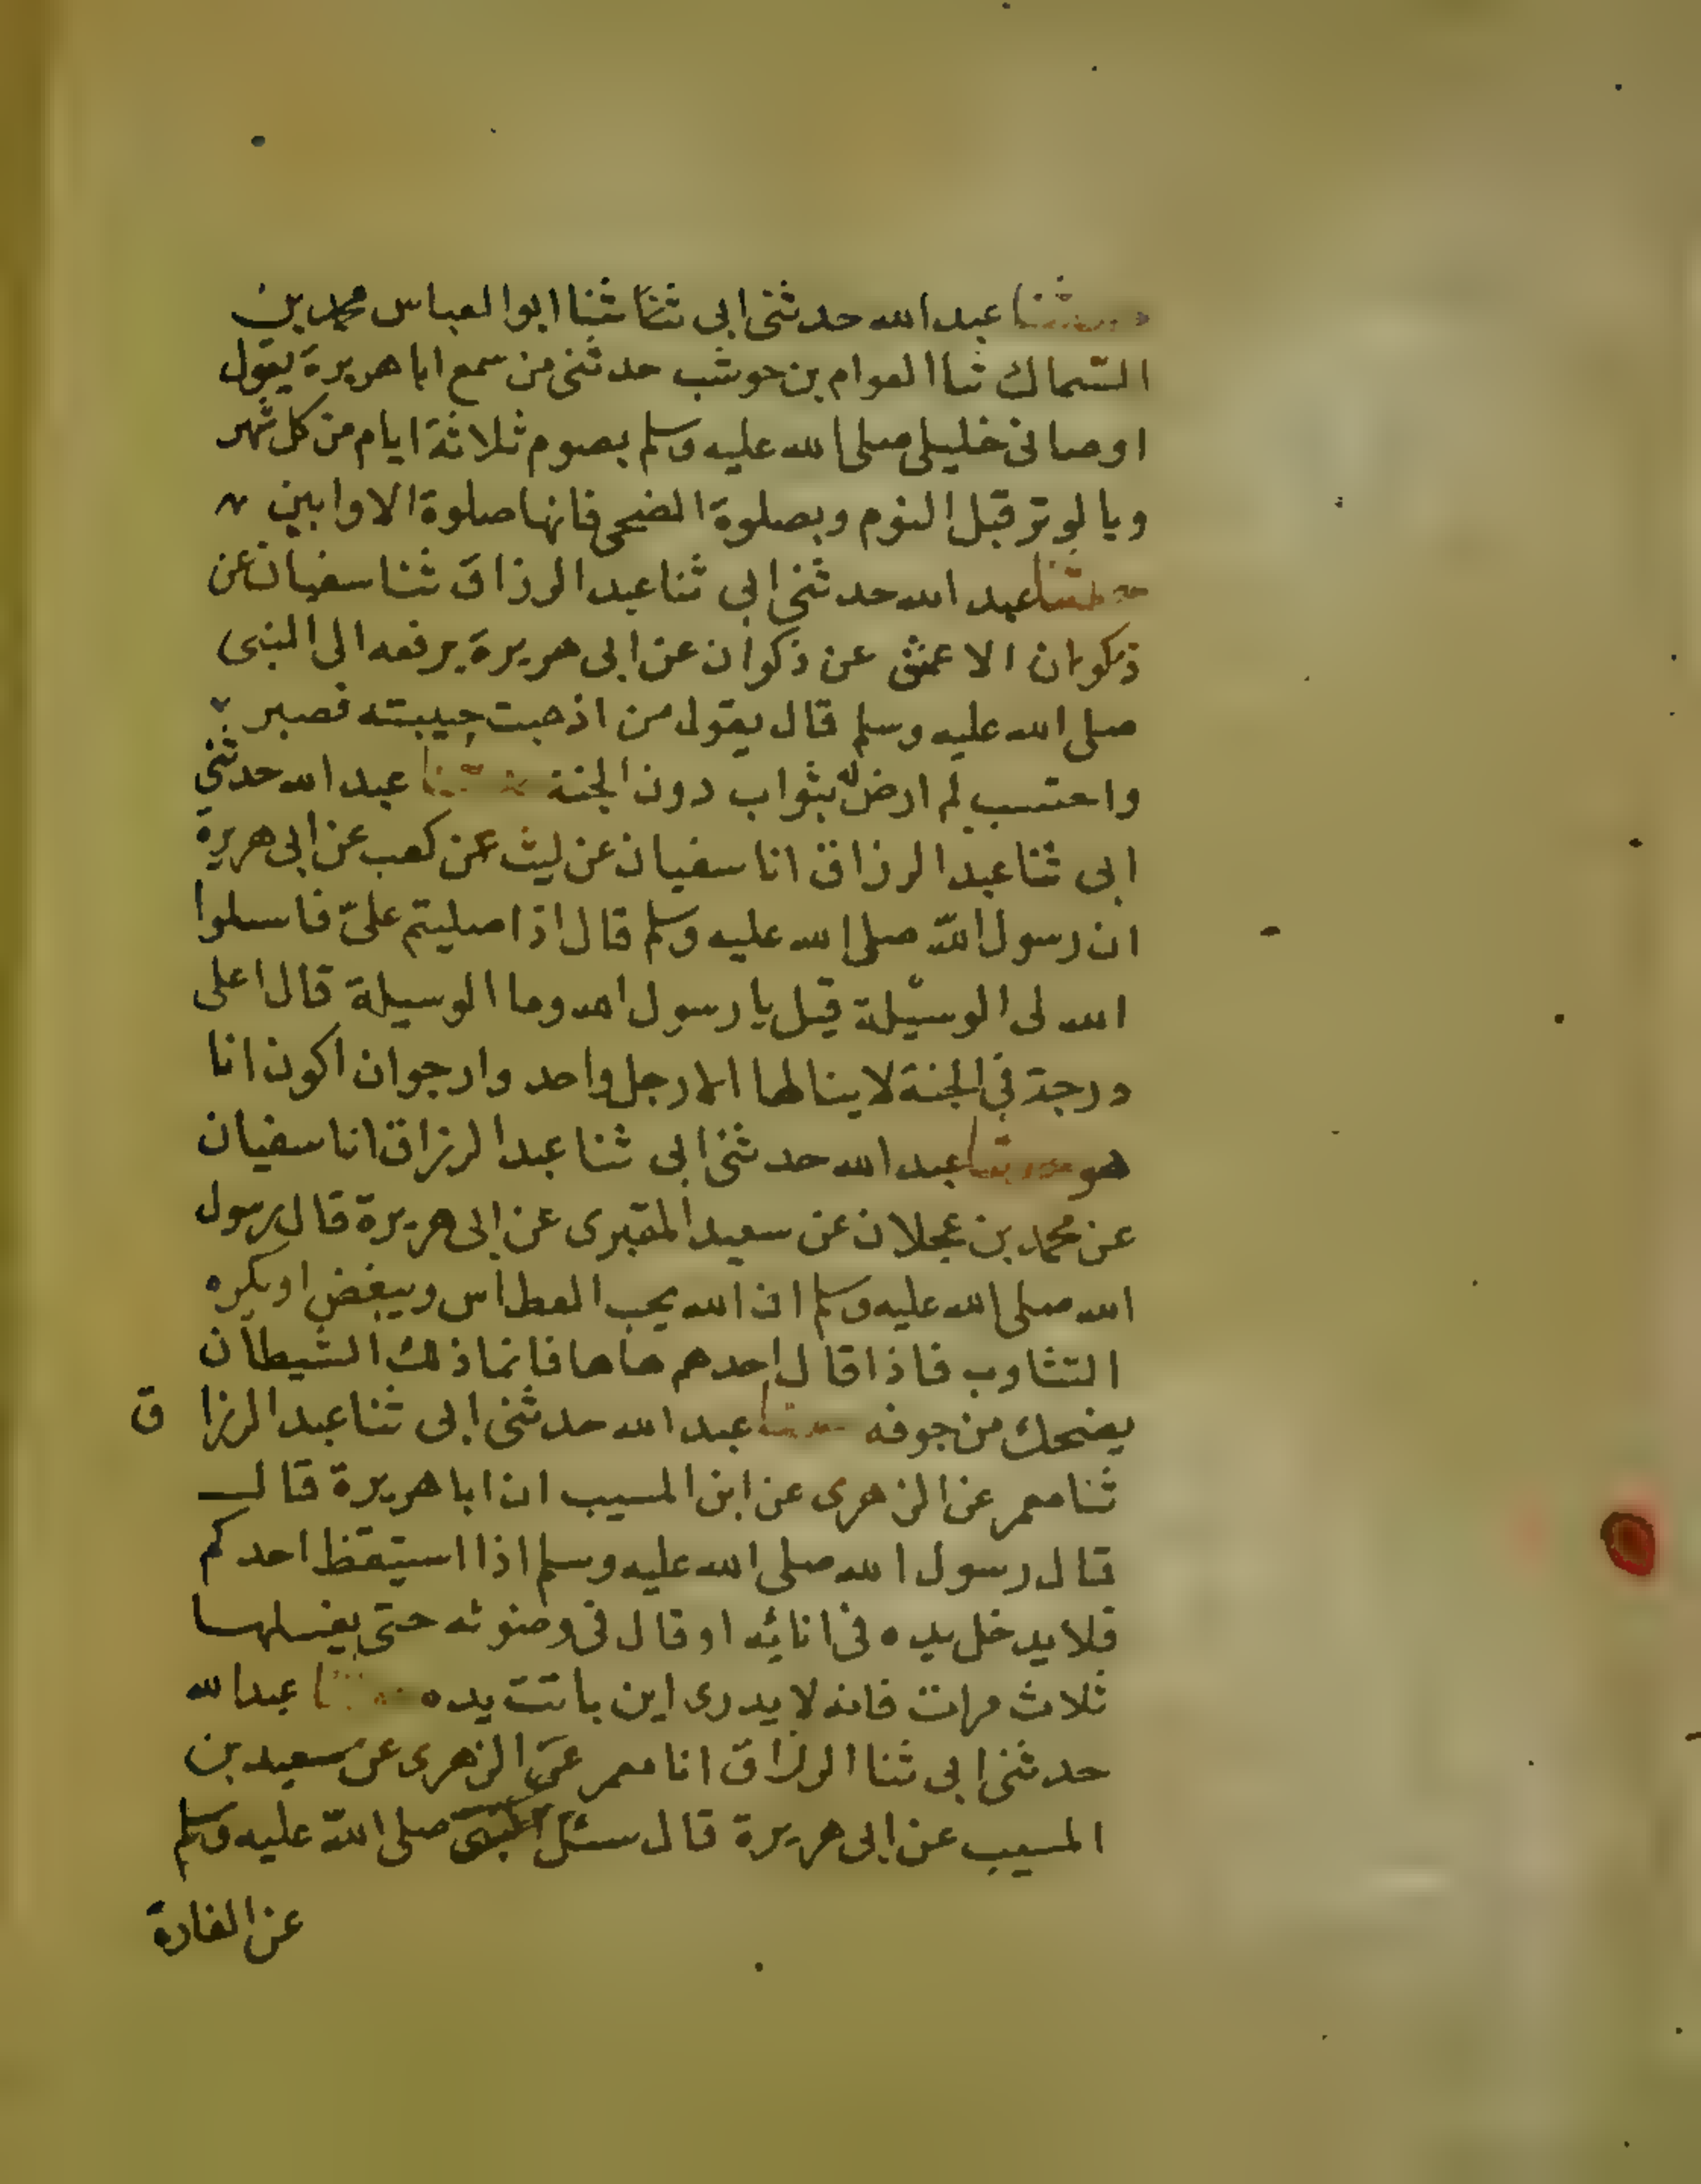 حدثنا عبد الله حدثنى ابى ثنا ثنا ابوا لعباس محمد بن
السماك ثنا العوام بن حوشب حدثنى من سمع ابا هريرة يقول
اوصانى خليلى صلى الله عليه وسلم بصوم ثلاثة ايام من كل شهر
وبالوتر قبل النوم وبصلوة الضحى فانها صلوة الاوابين
حدثنا عبد الله حدثنى ابى ثنا عبد الرزاق ثنا سفيان عن
ذكوان الاعمش عن ذكوان عن ابى هريرة يرفعه الى النبى
صلى الله عليه وسلم قال يقول من اذهبت حبيبته فصبر
واحتسب لم ارض له بثواب دون الجنة حدثنا عبد الله حدثني
ابى ثنا عبد الرزاق انا سفيان عن ليث عن كعب عن ابى هريرة
ان رسول الله صلى الله عليه وسلم قال اذا صليتم علىّ فاسلوا
الله لى الوسيلة قيل يا رسول الله وما الوسيلة قال اعلى
درجة في الجنة لا ينالها الا رجل واحد وارجوان اكون انا
هو حدثنا عبد الله حدثنى ابى ثنا عبد الرزاق انا سفيان
عن محمد بن عجلان عن سعيد المقبرى عن ابى هريرة قال رسول
الله صلى الله عليه وسلم ان الله يحب العطاس ويبغض او يكره
التثاوب فاذا قال احدهم ها ها فانما ذلك الشيطان
يضحك من جوفه حدثنا عبد الله حدثنى ابى ثنا عبد الرزا ق
ثنا معمر عن الزهرى عن ابن المسيب ان ابا هريرة قال
قال رسول الله صلى الله عليه وسلم اذا استيقظ احدكم
فلا يدخل يده فى انائه او قال فى وضوئه حتى يغسلها
ثلاث مرات فانه لا يدرى اين باتت يده حدثنا عبد الله
حدثنى ابى ثنا الرزاق انا معمر عن الزهرى عن سعيد بن
المسيب عن ابى هريرة قال سئل النبى صلى الله عليه وسلم
عن الفارة